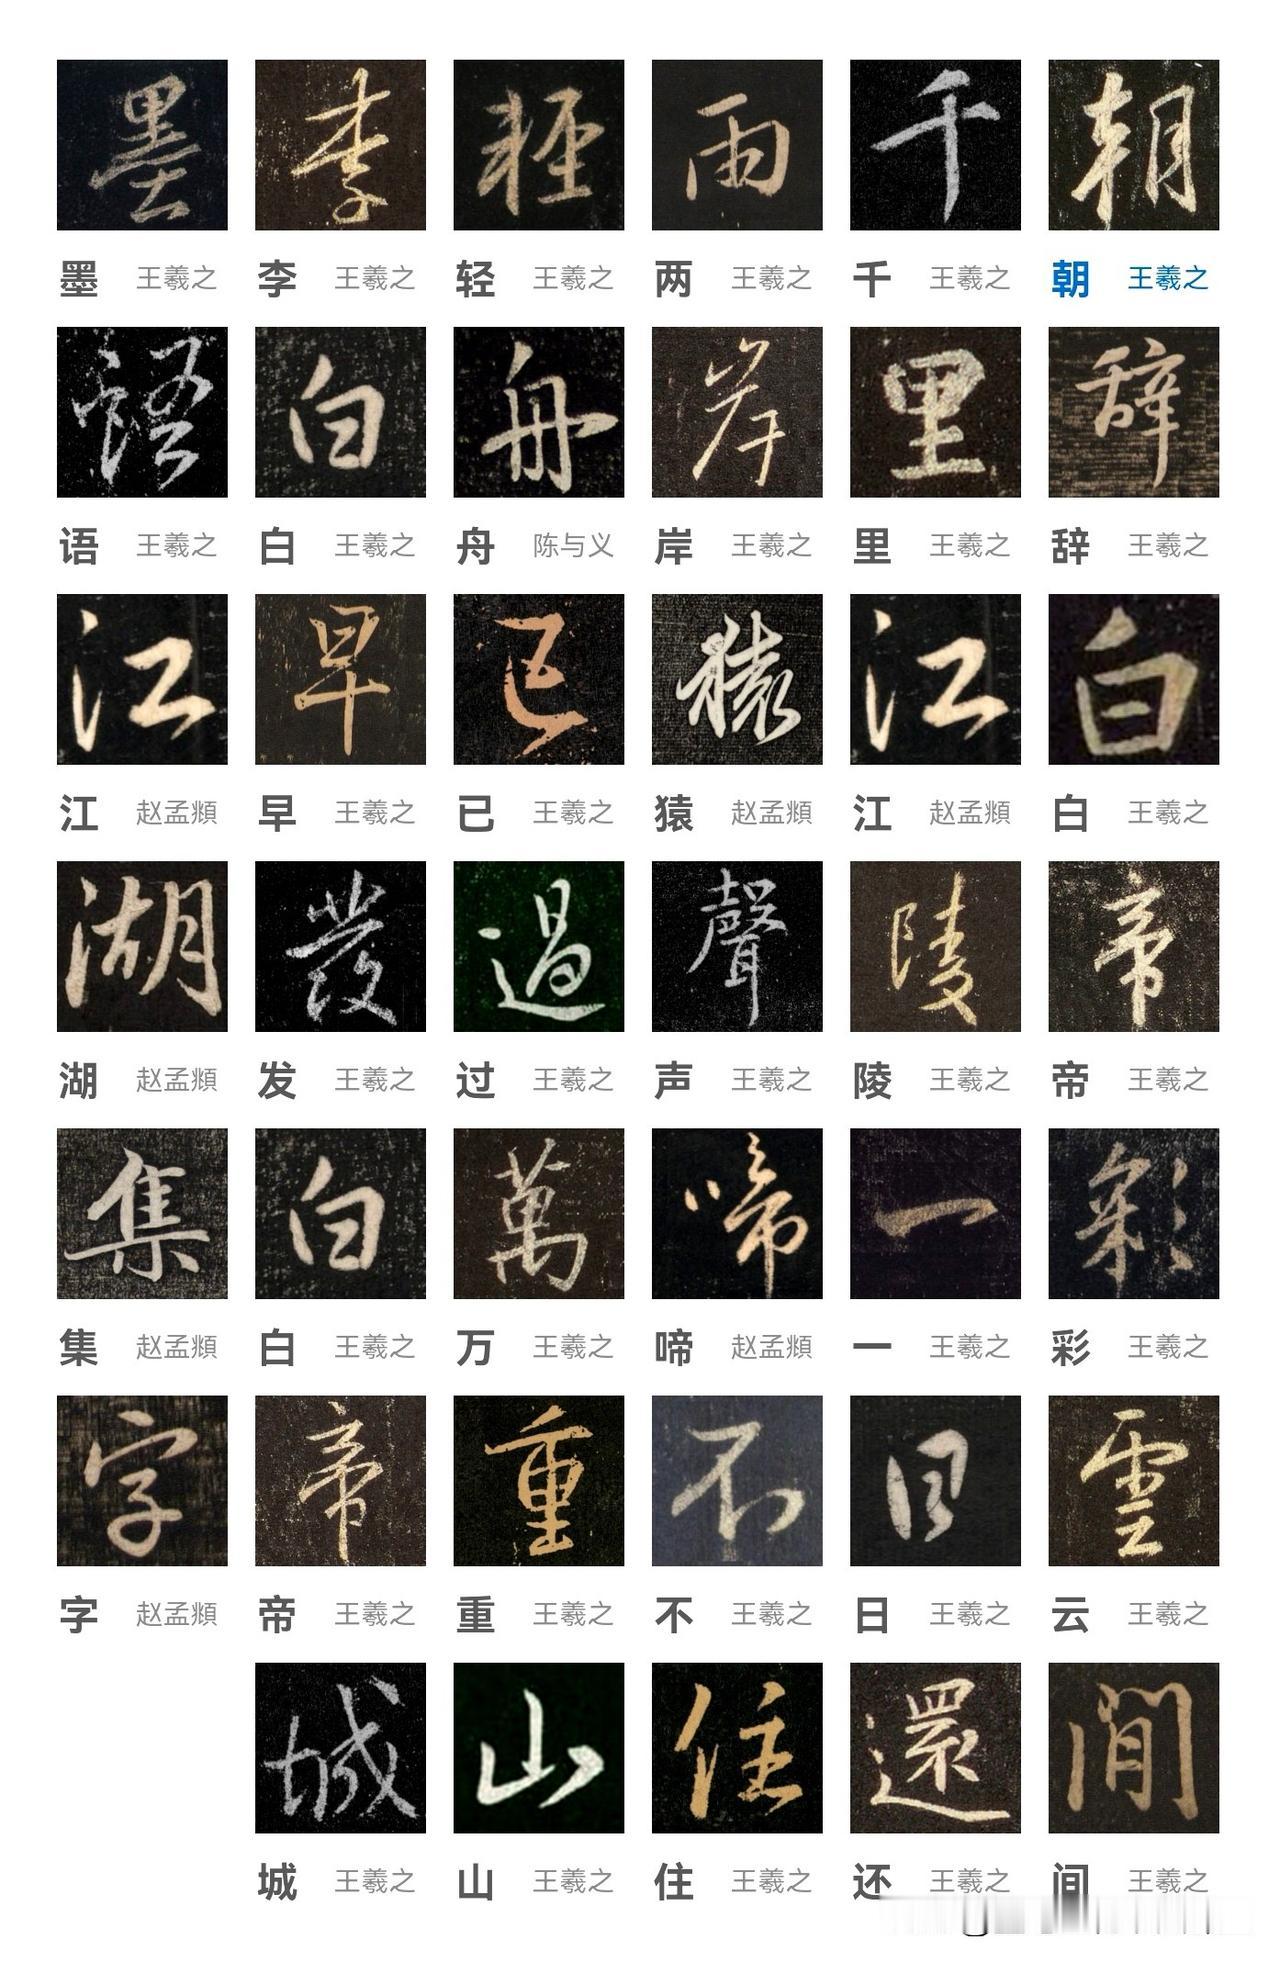 墨 李 輕 兩 千 朝
墨 王羲之 李 王羲之 轻 王羲之 两 王羲之 千 王羲之 朝 王羲之
語 白 舟 岸 里 辞
语 王羲之 白 王羲之 舟 陈与义 岸 王羲之 里 王羲之 辞 王羲之
江 早 已 猿 江 白
江 赵孟頫 早 王羲之 已 王羲之 猿 赵孟頫 江 赵孟頫 白 王羲之
湖 發 過 聲 陵 帝
湖 赵孟頫 发 王羲之 过 王羲之 声 王羲之 陵 王羲之 帝 王羲之
集 白 萬 啼 一 彩
集 赵孟頫 白 王羲之 万 王羲之 啼 赵孟頫 一 王羲之 彩 王羲之
字 帝 重 不 日 雲
字 赵孟頫 帝 王羲之 重 王羲之 不 王羲之 日 王羲之 云 王羲之
城 山 住 還 間
城 王羲之 山 王羲之 住 王羲之 还 王羲之 间 王羲之